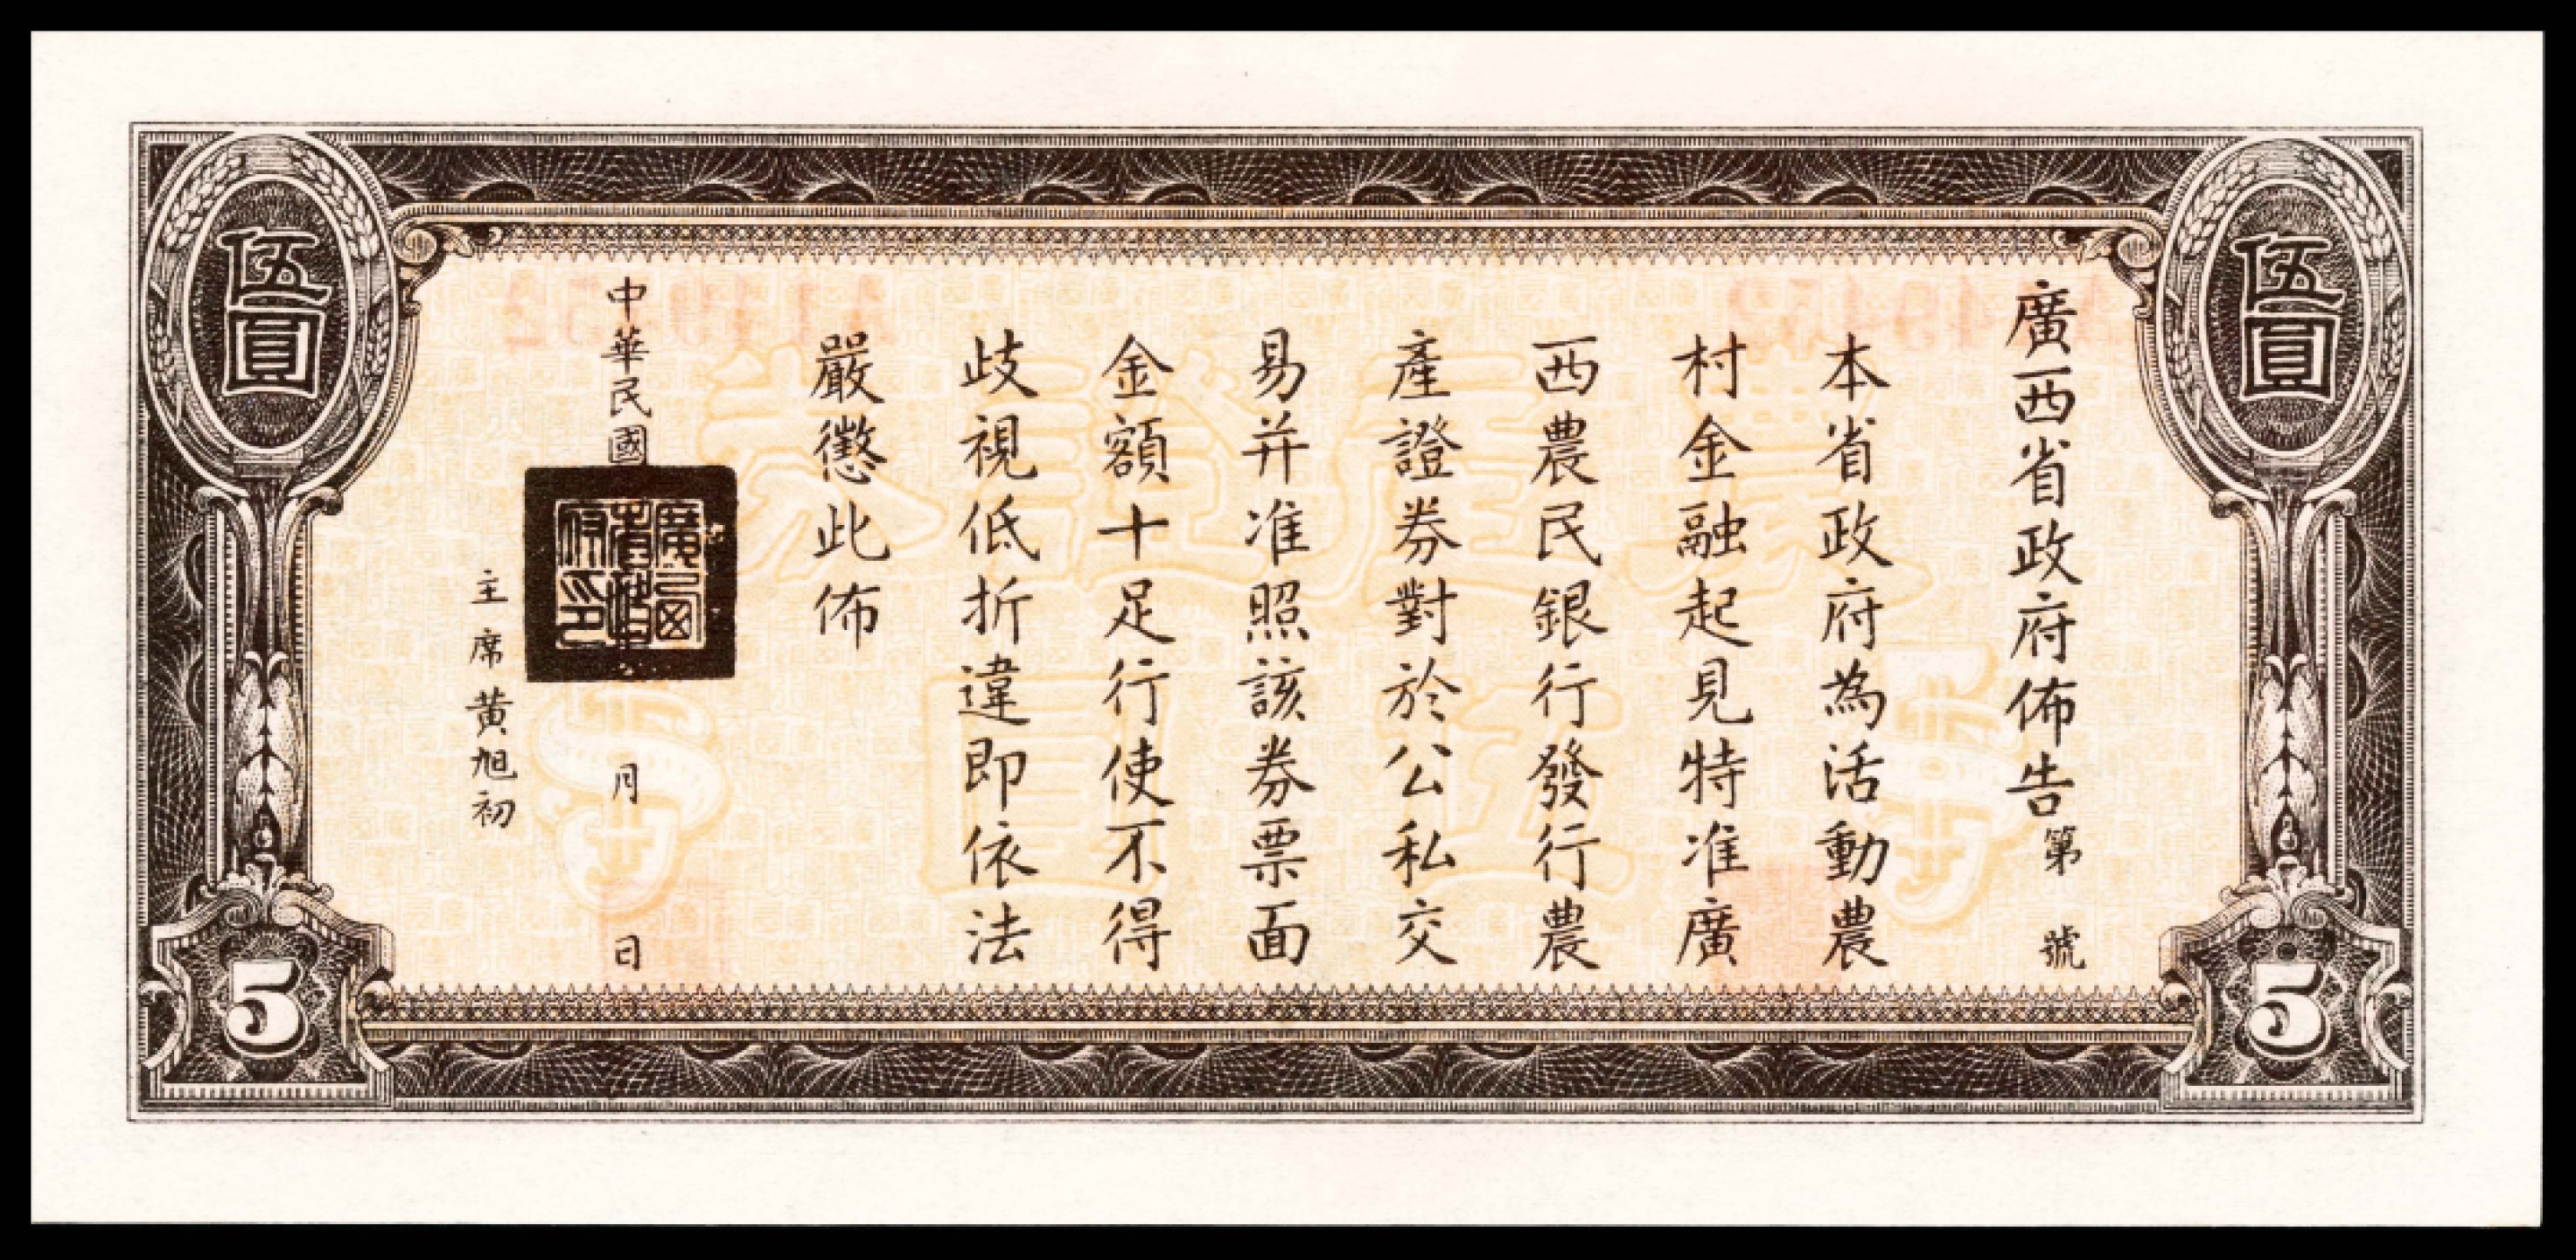 廣西省政府佈告第 號
本省政府為活動農
村金融起見特准廣
西農民銀行發行農
產證券對於公私交
易并准照該券票面
金額十足行使不得
歧視低折違即依法
嚴懲此佈
中華民國 月 日
廣西省政府印
主席黃旭初
伍圓
伍圓
5
5